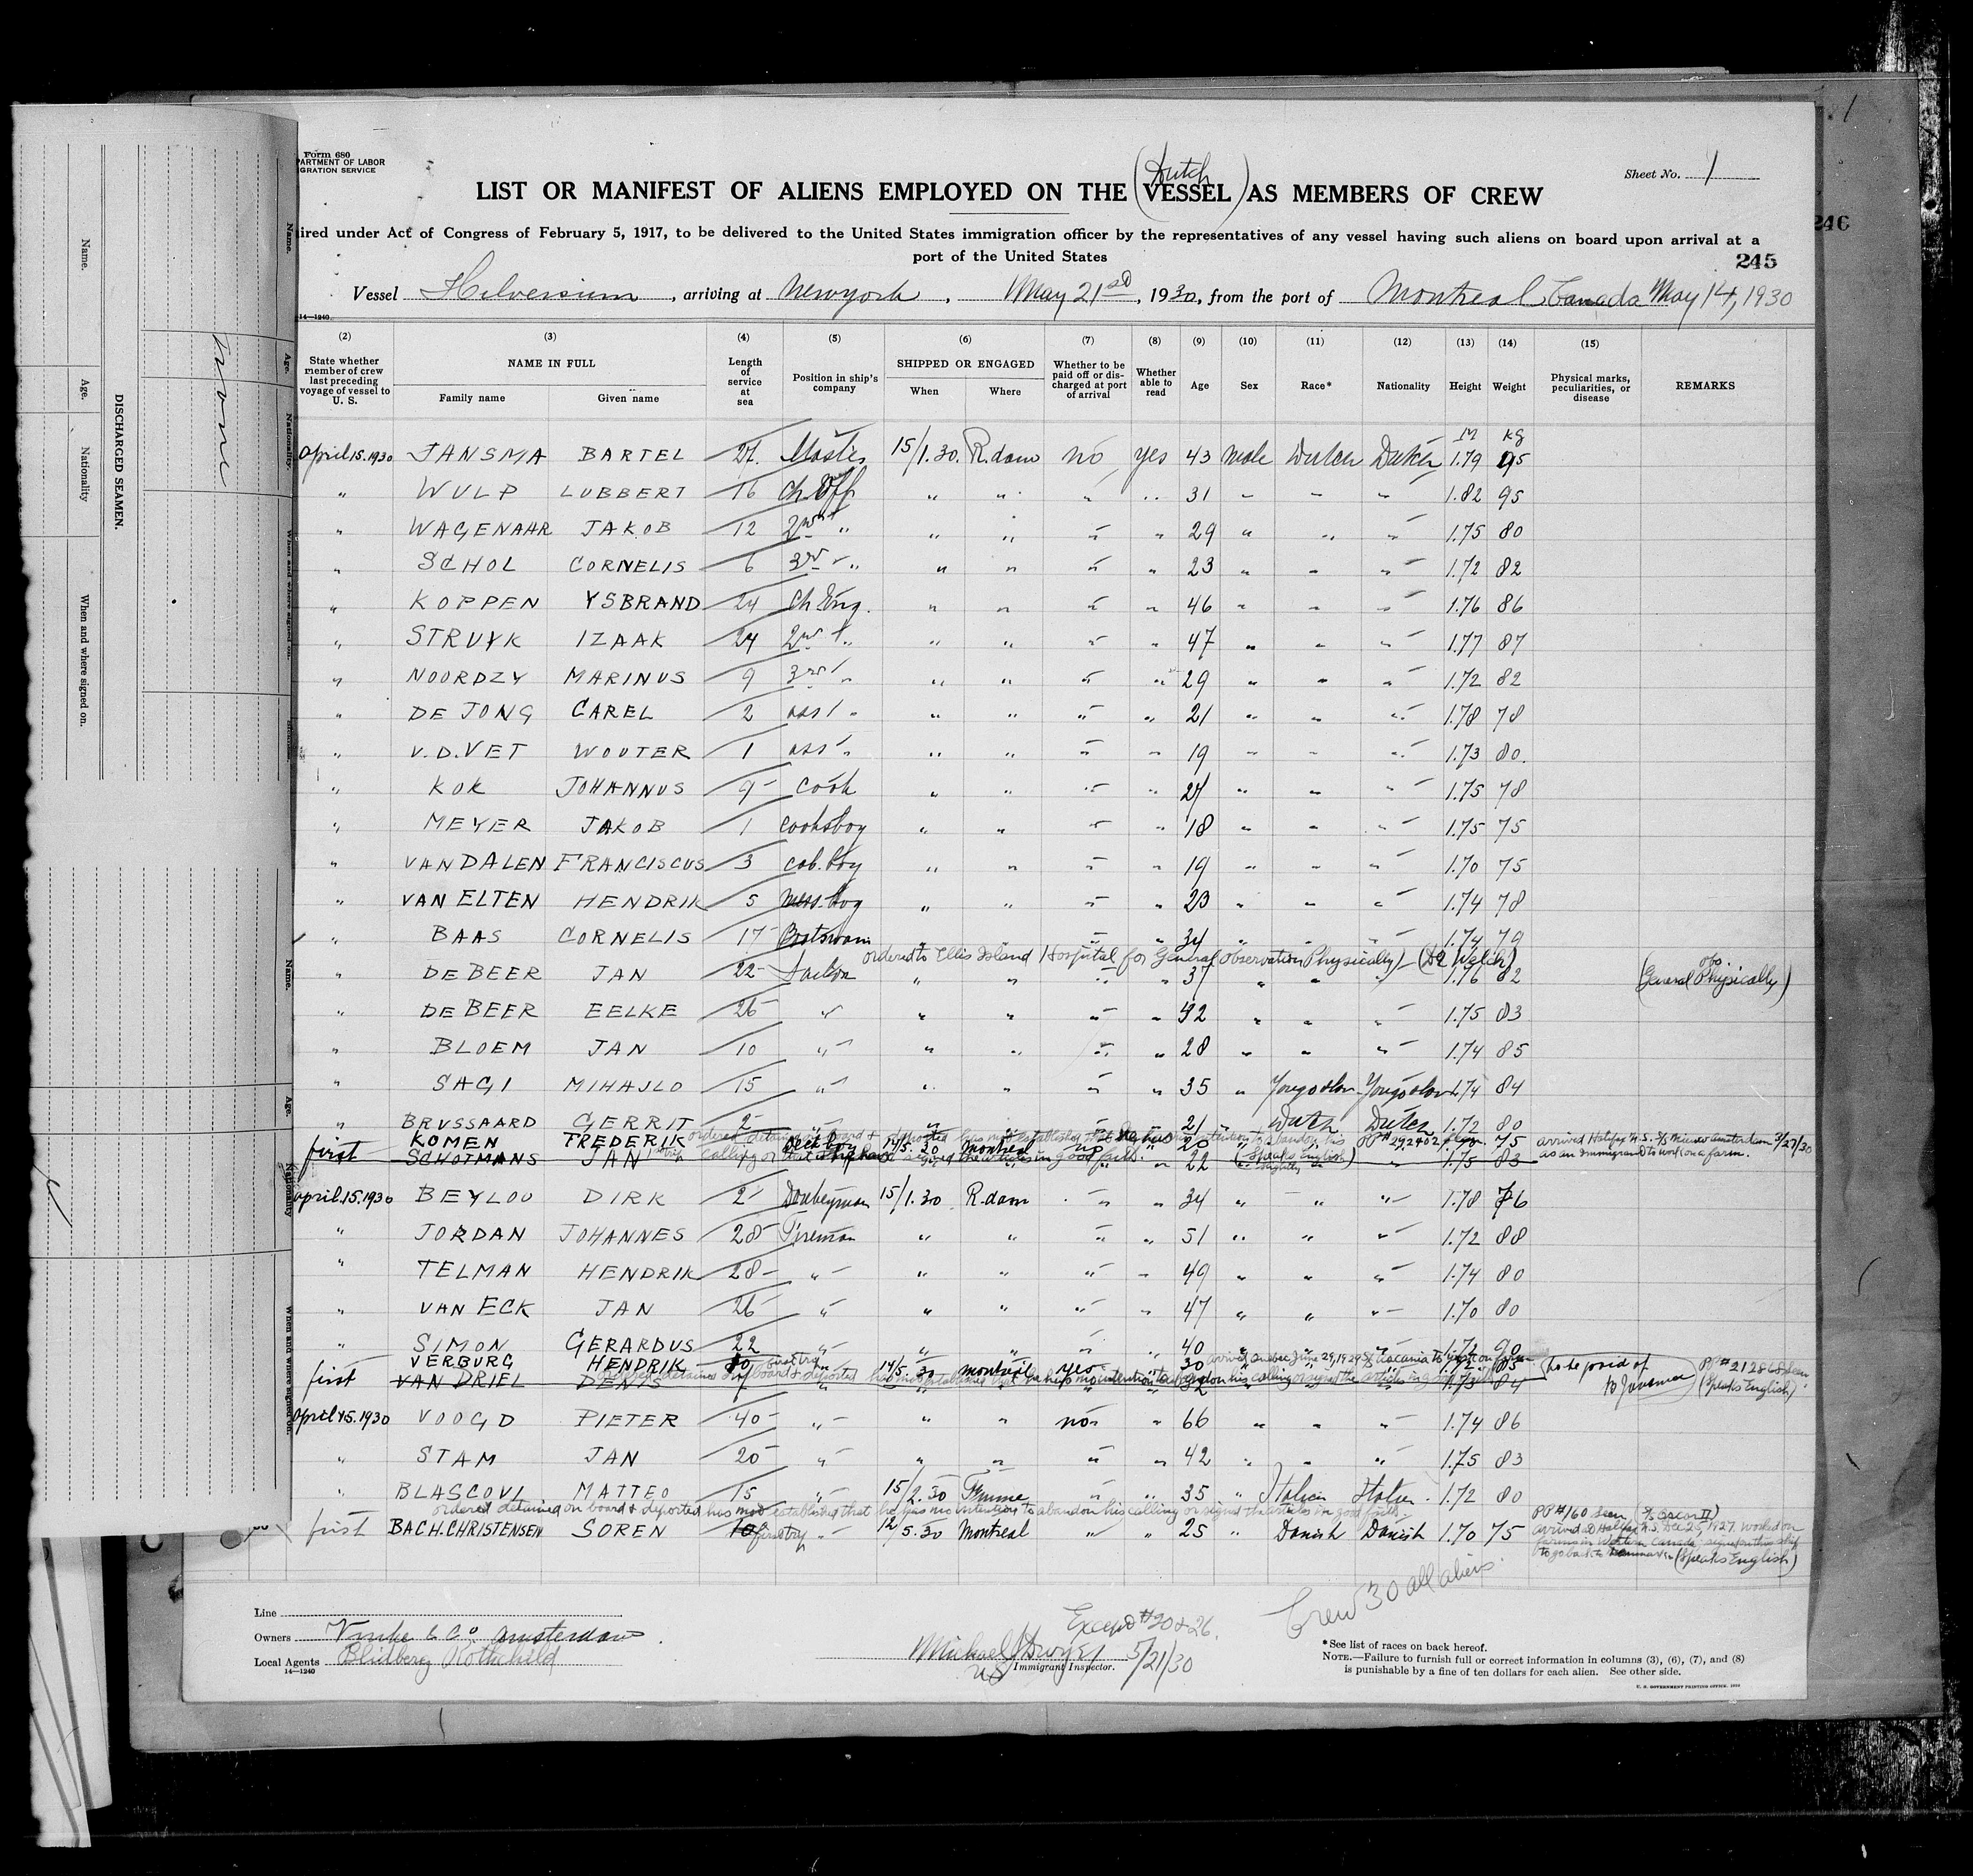 Form 680
PARTMENT OF LABOR
IGRATION SERVICE
Sheet No. 1
(Dutch)
LIST OR MANIFEST OF ALIENS EMPLOYED ON THE VESSEL AS MEMBERS OF CREW
246
ired under Act of Congress of February 5, 1917, to be delivered to the United States immigration officer by the representatives of any vessel having such aliens on board upon arrival at a
port of the United States
245
Vessel Hilversum, arriving at New york, May 21st, 1930, from the port of Montreal Canada May 14, 1930
14—1240
(2) (3) (4) (5) (6) (7) (8) (9) (10) (11) (12) (13) (14) (15)
State whether member of crew last preceding voyage of vessel to U. S.
NAME IN FULL
Family name Given name
Length of service at sea
Position in ship's company
SHIPPED OR ENGAGED
When Where
Whether to be paid off or discharged at port of arrival
Whether able to read
Age Sex Race* Nationality Height Weight
Physical marks, peculiarities, or disease
REMARKS
M kg
April 15.1930 JANSMA BARTEL 27. Master 15/1.30. R.dam no yes 43 male Dutch Dutch 1.79 95
" WULP LUBBERT 16 Ch. Off " " " " 31 " " " 1.82 95
" WAGENAAR JAKOB 12 2nd " " " " " 29 " " " 1.75 80
" SCHOL CORNELIS 6 3rd " " " " " 23 " " " 1.72 82
" KOPPEN YSBRAND 24 Ch Eng. " " " " 46 " " " 1.76 86
" STRUYK IZAAK 24 2nd " " " " " 47 " " " 1.77 87
" NOORDZY MARINUS 9 3rd " " " " " 29 " " " 1.72 82
" DE JONG CAREL 2 ass " " " " " 21 " " " 1.78 78
" V.D.VET WOUTER 1 ass " " " " " 19 " " " 1.73 80.
" KOK JOHANNUS 9 Cook " " " " 24 " " " 1.75 78
" MEYER JAKOB 1 Cooksboy " " " " 18 " " " 1.75 75
" VAN DALEN FRANCISCUS 3 cab. boy " " " " 19 " " " 1.70 75
" VAN ELTEN HENDRIK 5 mess. boy " " " " 23 " " " 1.74 78
" BAAS CORNELIS 17 Boatswain " " " " 34 " " " 1.74 79
ordered to Ellis Island Hospital for General observation Physically) (Dr Welch)
" DE BEER JAN 22 Sailor " " " " 37 " " " 1.76 82 (General obs. Physically)
" DE BEER EELKE 26 " " " " " 42 " " " 1.75 83
" BLOEM JAN 10 " " " " " 28 " " " 1.74 85
" SAGI MIHAJLO 15 " " " " " 35 " Yougoslav Yougoslav 1.74 84
" BRUSSAARD GERRIT 2 " " " " " 21 " Dutch Dutch 1.72 80
first KOMEN FREDERIK deck boy 14/5.30 Montreal no " 20 75 arrived Halifax N.S. S/S Nieuw Amsterdam 3/27/30
as an Immigrant to work on a farm.
SCHOTMANS JAN " 22 (Speaks English) 1.75 83
April 15.1930 BEYLOO DIRK 2 Donkeyman 15/1.30 R.dam " " 34 " " " 1.78 76
" JORDAN JOHANNES 28 Fireman " " " " 51 " " " 1.72 88
" TELMAN HENDRIK 28 " " " " " 49 " " " 1.74 80
" VAN ECK JAN 26 " " " " " 47 " " " 1.70 80
" SIMON GERARDUS 22 " " " " " 40 " " " 1.72 90
first VERBURG HENDRIK 14/5.30 Montreal yes " 30 1.72 85 (to be paid of
VAN DRIEL DENIS " 1.73 84 (Speaks English)
April 15.1930 VOOGD PIETER 40 " " " no " 66 " " " 1.74 86
" STAM JAN 20 " " " " " 42 " " " 1.75 83
" BLASCOVI MATTEO 15 " 15/2.30 Fiume " " 35 " Italien Italien. 1.72 80
ordered detained on board & deported has not established that he has no intention to abandon his calling or signed the articles in good faith.
first BACH.CHRISTENSEN SOREN first try " 12/5.30 Montreal " " 25 " Danish Danish 1.70 75
PP #160 seen (S/S Oscar II)
arrived at Halifax N.S. Dec 25, 1927. Worked on
farms in Western Canada, signed on this ship
to go back to Denmark (Speaks English)
Crew 30 all aliens.
Except #20 & 26.
Line
Owners Vinke & Co Amsterdam.
Local Agents Blidberg Rothchild
14—1240
Michael J Dwyer 5/21/30
US Immigrant Inspector.
*See list of races on back hereof.
NOTE.—Failure to furnish full or correct information in columns (3), (6), (7), and (8)
is punishable by a fine of ten dollars for each alien. See other side.
U. S. GOVERNMENT PRINTING OFFICE
DISCHARGED SEAMEN.
Name.
Age.
Nationality
When and where signed on.
none
Name.
Age.
Nationality.
When and where signed on.
Name.
Age.
Nationality
When and where signed on.